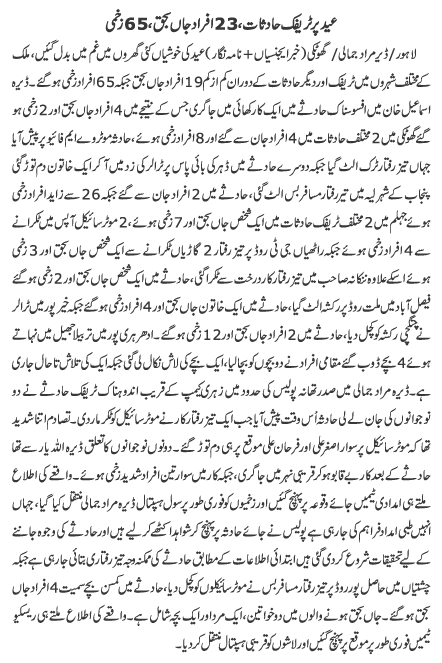 عید پر ٹریفک حادثات، 23 افراد جاں بحق، 65 زخمی
لاہور/ ڈیرہ مراد جمالی/ گھوٹکی (خبر ایجنسیاں + نامہ نگار) عید کی خوشیاں کئی گھروں میں غم میں بدل گئیں، ملک
کے مختلف شہروں میں ٹریفک اور دیگر حادثات کے دوران کم از کم 19 افراد جاں بحق جبکہ 65 افراد زخمی ہو گئے۔ ڈیرہ
اسماعیل خان میں افسوسناک حادثے میں ایک کار کھائی میں جا گری جس کے نتیجے میں 4 افراد جاں بحق اور 2 زخمی ہو
گئے گھوٹکی میں 2 مختلف حادثات میں 4 افراد جان سے گئے اور 8 افراد زخمی ہوئے، حادثہ موٹروے ایم فائیو پر پیش آیا
جہاں تیز رفتار ٹرک الٹ گیا جبکہ دوسرے حادثے میں ڈہرکی بائی پاس پر ٹرالر کی زد میں آ کر ایک خاتون دم توڑ گئی
پنجاب کے شہر لیہ میں تیز رفتار مسافر بس الٹ گئی، حادثے میں 2 افراد جان سے گئے جبکہ 26 سے زاید افراد زخمی
ہوئے جہلم میں 2 مختلف ٹریفک حادثات میں ایک شخص جاں بحق اور 7 زخمی ہوئے، 2 موٹر سائیکل آپس میں ٹکرانے
سے 4 افراد زخمی ہوئے جبکہ راٹھیاں جی ٹی روڈ پر تیز رفتار 2 گاڑیاں ٹکرانے سے ایک شخص جاں بحق اور 3 زخمی
ہوئے اسکے علاوہ ننکانہ صاحب میں تیز رفتار کار درخت سے ٹکرا گئی، حادثے میں ایک شخص جاں بحق اور 2 زخمی ہو گئے
فیصل آباد میں ملت روڈ پر رکشہ الٹ گیا، حادثے میں ایک خاتون جاں بحق اور 4 افراد زخمی ہو گئے جبکہ خیرپور میں ٹرالر
نے چنگچی رکشہ کو کچل دیا، حادثے میں 2 افراد جاں بحق اور 12 زخمی ہو گئے۔ ادھر ہری پور میں تربیلا جھیل میں نہاتے
ہوئے 4 بچے ڈوب گئے مقامی افراد نے دو بچوں کو بچا لیا، ایک بچے کی لاش نکال لی گئی جبکہ ایک کی تلاش تاحال جاری
ہے۔ ڈیرہ مراد جمالی میں صدر تھانہ پولیس کی حدود میں زہری کیمپ کے قریب اندوہناک ٹریفک حادثے نے دو
نوجوانوں کی جان لے لی حادثہ اُس وقت پیش آیا جب ایک تیز رفتار کار نے موٹر سائیکل کو ٹکر مار دی۔ تصادم اتنا شدید
تھا کہ موٹر سائیکل پر سوار اصغر علی اور فرحان علی موقع پر ہی دم توڑ گئے۔ دونوں نوجوانوں کا تعلق ڈیرہ اللہ یار سے تھا
حادثے کے بعد کار بے قابو ہو کر قریبی نہر میں جا گری، جبکہ کار میں سوار تین افراد شدید زخمی ہوئے۔ واقعے کی اطلاع
ملتے ہی امدادی ٹیمیں جائے وقوعہ پر پہنچ گئیں اور زخمیوں کو فوری طور پر سول ہسپتال ڈیرہ مراد جمالی منتقل کیا گیا، جہاں
انہیں طبی امداد فراہم کی جا رہی ہے پولیس نے جائے حادثہ پر پہنچ کر شواہد اکٹھے کر لیے ہیں اور حادثے کی وجوہ جاننے
کے لیے تحقیقات شروع کر دی گئی ہیں ابتدائی اطلاعات کے مطابق حادثے کی ممکنہ وجہ تیز رفتاری بتائی جا رہی ہے جبکہ
چشتیاں میں حاصل پور روڈ پر تیز رفتار مسافر بس نے موٹر سائیکلوں کو کچل دیا، حادثے میں کمسن بچے سمیت 4 افراد جاں
بحق ہو گئے۔ جاں بحق ہونے والوں میں دو خواتین، ایک مرد اور ایک بچہ شامل ہے۔ واقعے کی اطلاع ملتے ہی ریسکیو
ٹیمیں فوری طور پر موقع پر پہنچ گئیں اور لاشوں کو قریبی ہسپتال منتقل کر دیا۔